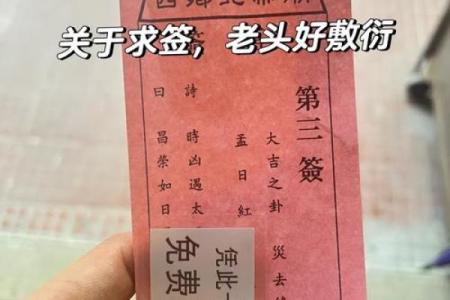 西鄉北帝
关于求签，老头好敷衍
第三簽
大吉之卦 災去
孟日紅
詩 時凶遇太
曰 昌榮如日
凭此一
免费